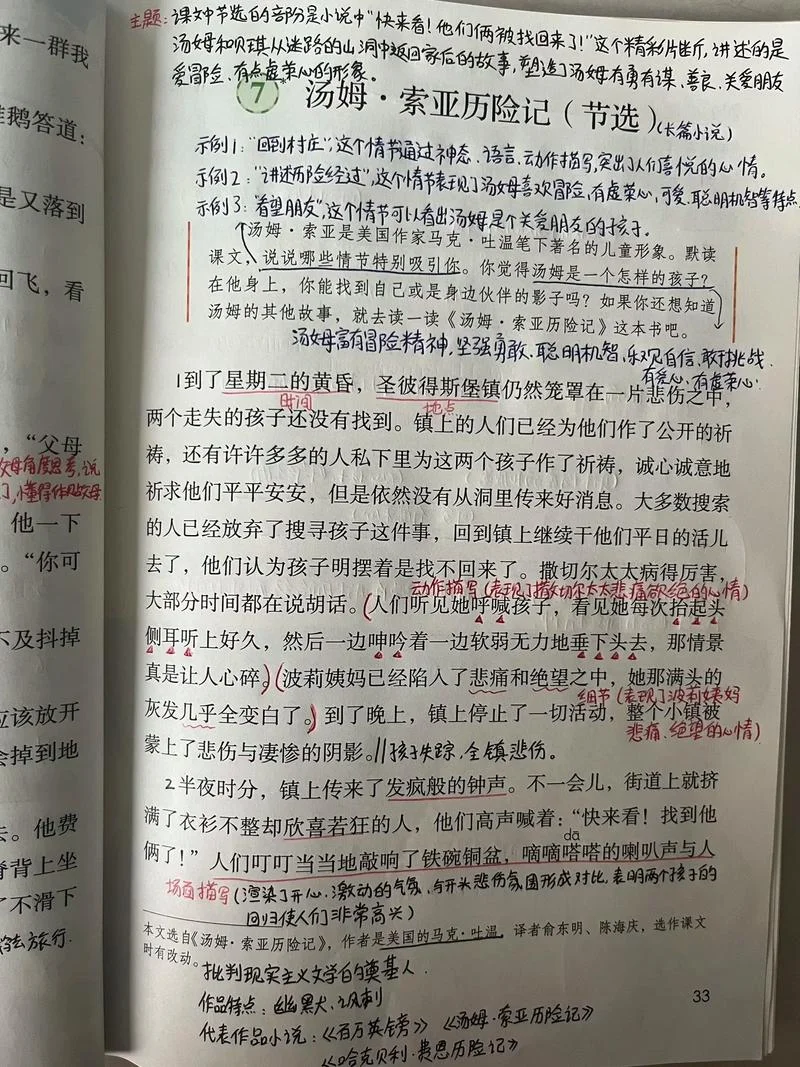 主题：课文中节选的部分是小说中“快来看！他们俩被找回来了！”这个精彩片断，讲述的是
汤姆和贝琪从迷路的山洞中返回家后的故事，塑造了汤姆有勇有谋、善良、关爱朋友
爱冒险、有点虚荣心的形象。
7 汤姆·索亚历险记（节选）(长篇小说)
示例1：“回到村庄”，这个情节通过神态、语言、动作描写，突出人们喜悦的心情。
示例2：“讲述历险经过”，这个情节表现了汤姆喜欢冒险，有虚荣心，可爱、聪明机智等特点
示例3：“看望朋友”，这个情节可以看出汤姆是个关爱朋友的孩子。
汤姆·索亚是美国作家马克·吐温笔下著名的儿童形象。默读
课文，说说哪些情节特别吸引你。你觉得汤姆是一个怎样的孩子？
在他身上，你能找到自己或是身边伙伴的影子吗？如果你还想知道
汤姆的其他故事，就去读一读《汤姆·索亚历险记》这本书吧。
汤姆富有冒险精神，坚强勇敢、聪明机智、乐观自信、敢于挑战、
有爱心、有虚荣心.
1到了星期二的黄昏，圣彼得斯堡镇仍然笼罩在一片悲伤之中，
时间 地点
两个走失的孩子还没有找到。镇上的人们已经为他们作了公开的祈
祷，还有许许多多的人私下里为这两个孩子作了祈祷，诚心诚意地
祈求他们平平安安，但是依然没有从洞里传来好消息。大多数搜索
的人已经放弃了搜寻孩子这件事，回到镇上继续干他们平日的活儿
去了，他们认为孩子明摆着是找不回来了。撒切尔太太病得厉害，
动作描写(表现了撒切尔太太悲痛欲绝的心情)
大部分时间都在说胡话。(人们听见她呼喊孩子，看见她每次抬起头
侧耳听上好久，然后一边呻吟着一边软弱无力地垂下头去，那情景
真是让人心碎。)(波莉姨妈已经陷入了悲痛和绝望之中，她那满头的
细节(表现了波莉姨妈
灰发几乎全变白了。)到了晚上，镇上停止了一切活动，整个小镇被
悲痛、绝望的心情)
蒙上了悲伤与凄惨的阴影。//孩子失踪，全镇悲伤。
2半夜时分，镇上传来了发疯般的钟声。不一会儿，街道上就挤
满了衣衫不整却欣喜若狂的人，他们高声喊着：“快来看！找到他
dā
俩了！”人们叮叮当当地敲响了铁碗铜盆，嘀嘀嗒嗒的喇叭声与人
场面描写(渲染了开心、激动的气氛，与开头悲伤氛围形成对比，表明两个孩子的
回归使人们非常高兴)
本文选自《汤姆·索亚历险记》，作者是美国的马克·吐温，译者俞东明、陈海庆，选作课文
时有改动。
批判现实主义文学的奠基人.
作品特点：幽默、讽刺
代表作品小说：《百万英镑》《汤姆·索亚历险记》
《哈克贝利·费恩历险记》
33
来一群我
鹅答道：
是又落到
回飞，看
，“父母
他一下
。“你可
不及抖掉
应该放开
会掉到地
去。他费
脊背上坐
了不滑下
去旅行.